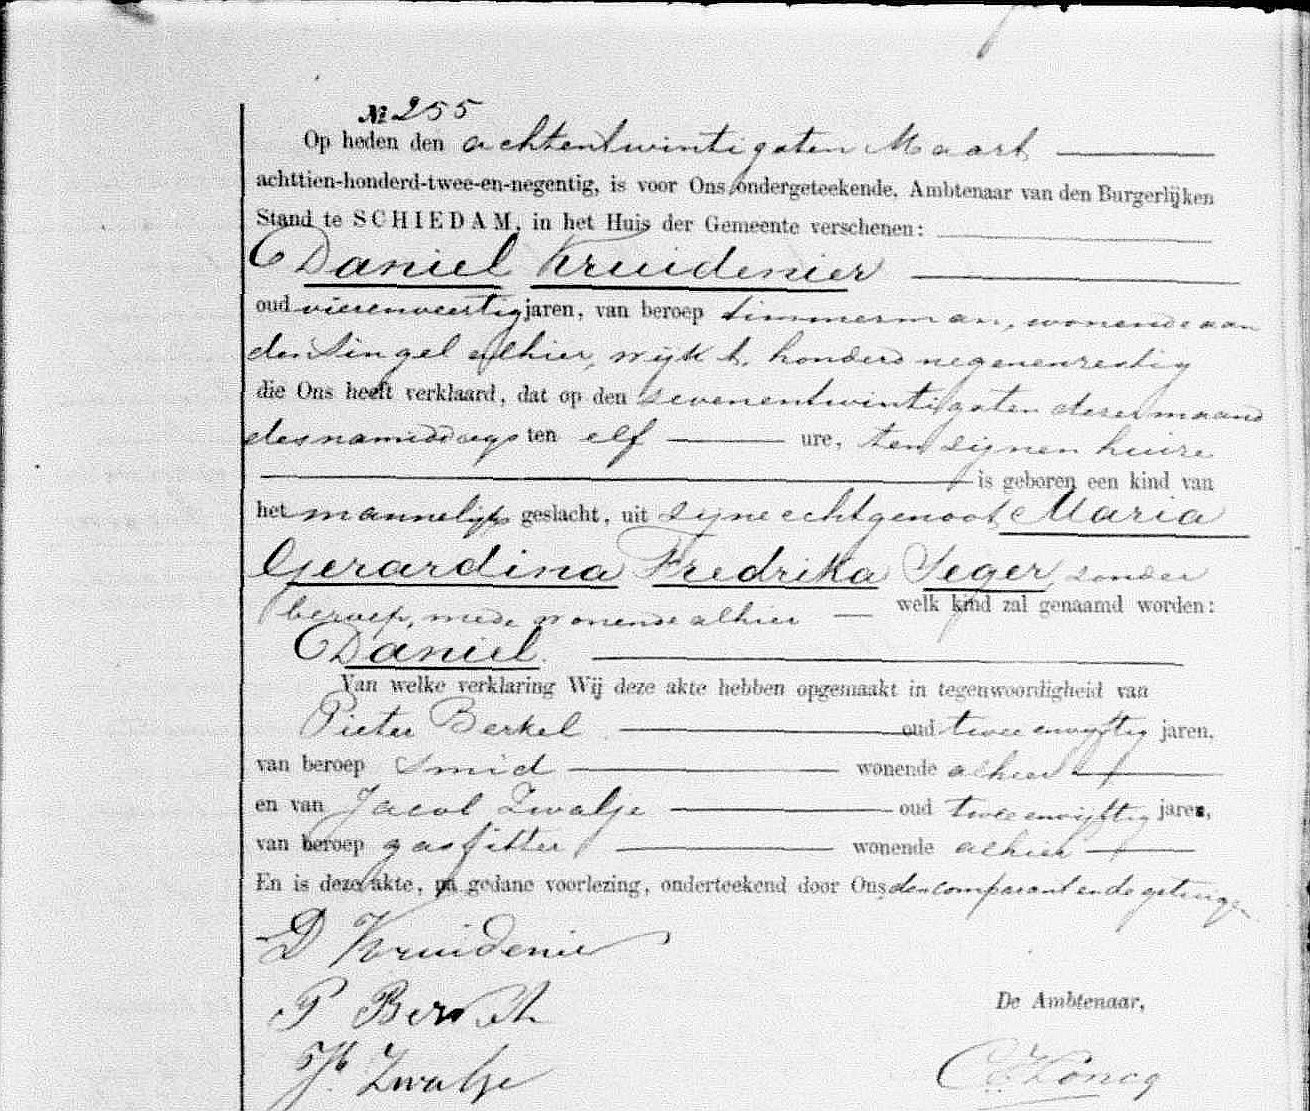 № 255
Op heden den achtentwintigsten Maart
achttien-honderd-twee-en-negentig, is voor Ons ondergeteekende, Ambtenaar van den Burgerlijken
Stand te SCHIEDAM, in het Huis der Gemeente verschenen:
Daniel Kruidenier
oud vierenveertig jaren, van beroep timmerman, wonende aan
den Singel alhier, wijk L honderd negenenzestig
die Ons heeft verklaard, dat op den zevenentwintigsten dezer maand
des namiddags ten elf ure, ten zijnen huize
is geboren een kind van
het mannelijk geslacht, uit zijne echtgenoot Maria
Gerardina Fredrika Seger, zonder
beroep, mede wonende alhier welk kind zal genaamd worden:
Daniel
Van welke verklaring Wij deze akte hebben opgemaakt in tegenwoordigheid van
Pieter Berkel oud tweeenvijftig jaren,
van beroep smid wonende alhier
en van Jacob Zwalje oud tweeenvijftig jaren,
van beroep gasfitter wonende alhier
En is deze akte, na gedane voorlezing, onderteekend door Ons, den comparant en de getuigen
D Kruidenier
P Berkel
De Ambtenaar,
Jb Zwalje